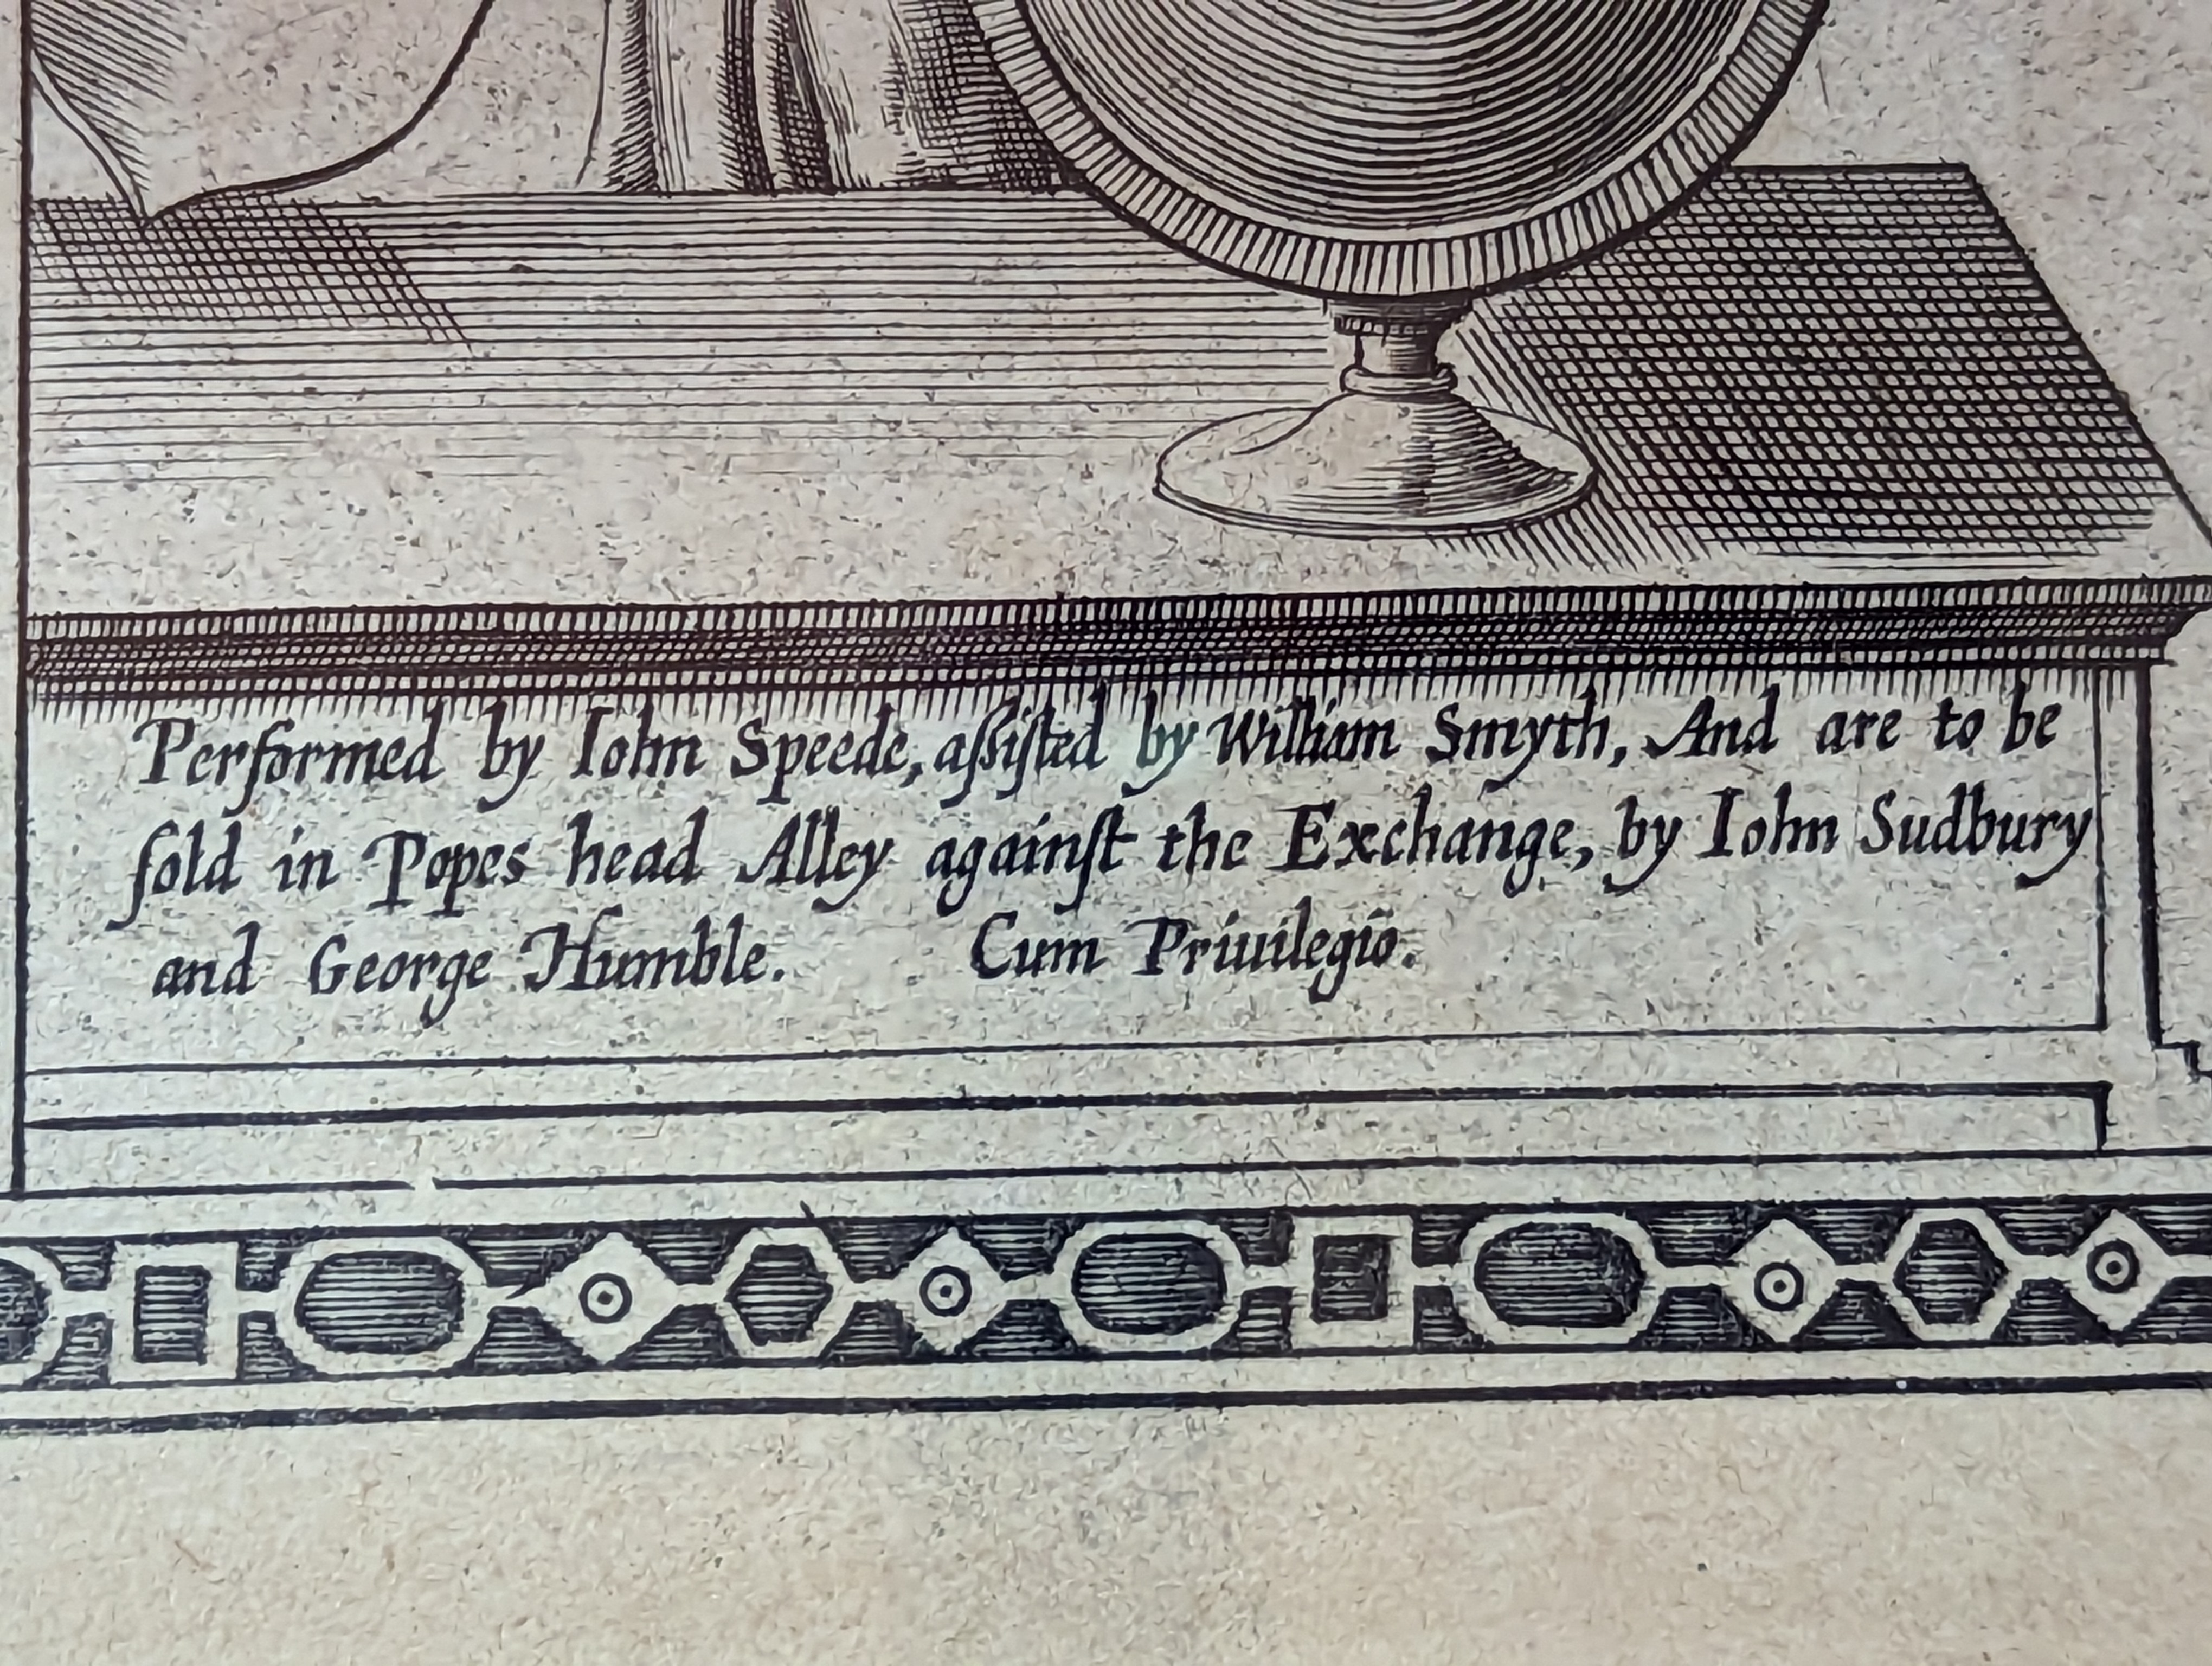 Performed by Iohn Speede, aſsiſted by William Smyth, And are to be
ſold in Popes head Alley againſt the Exchange, by Iohn Sudbury
and George Humble. Cum Priuilegio.